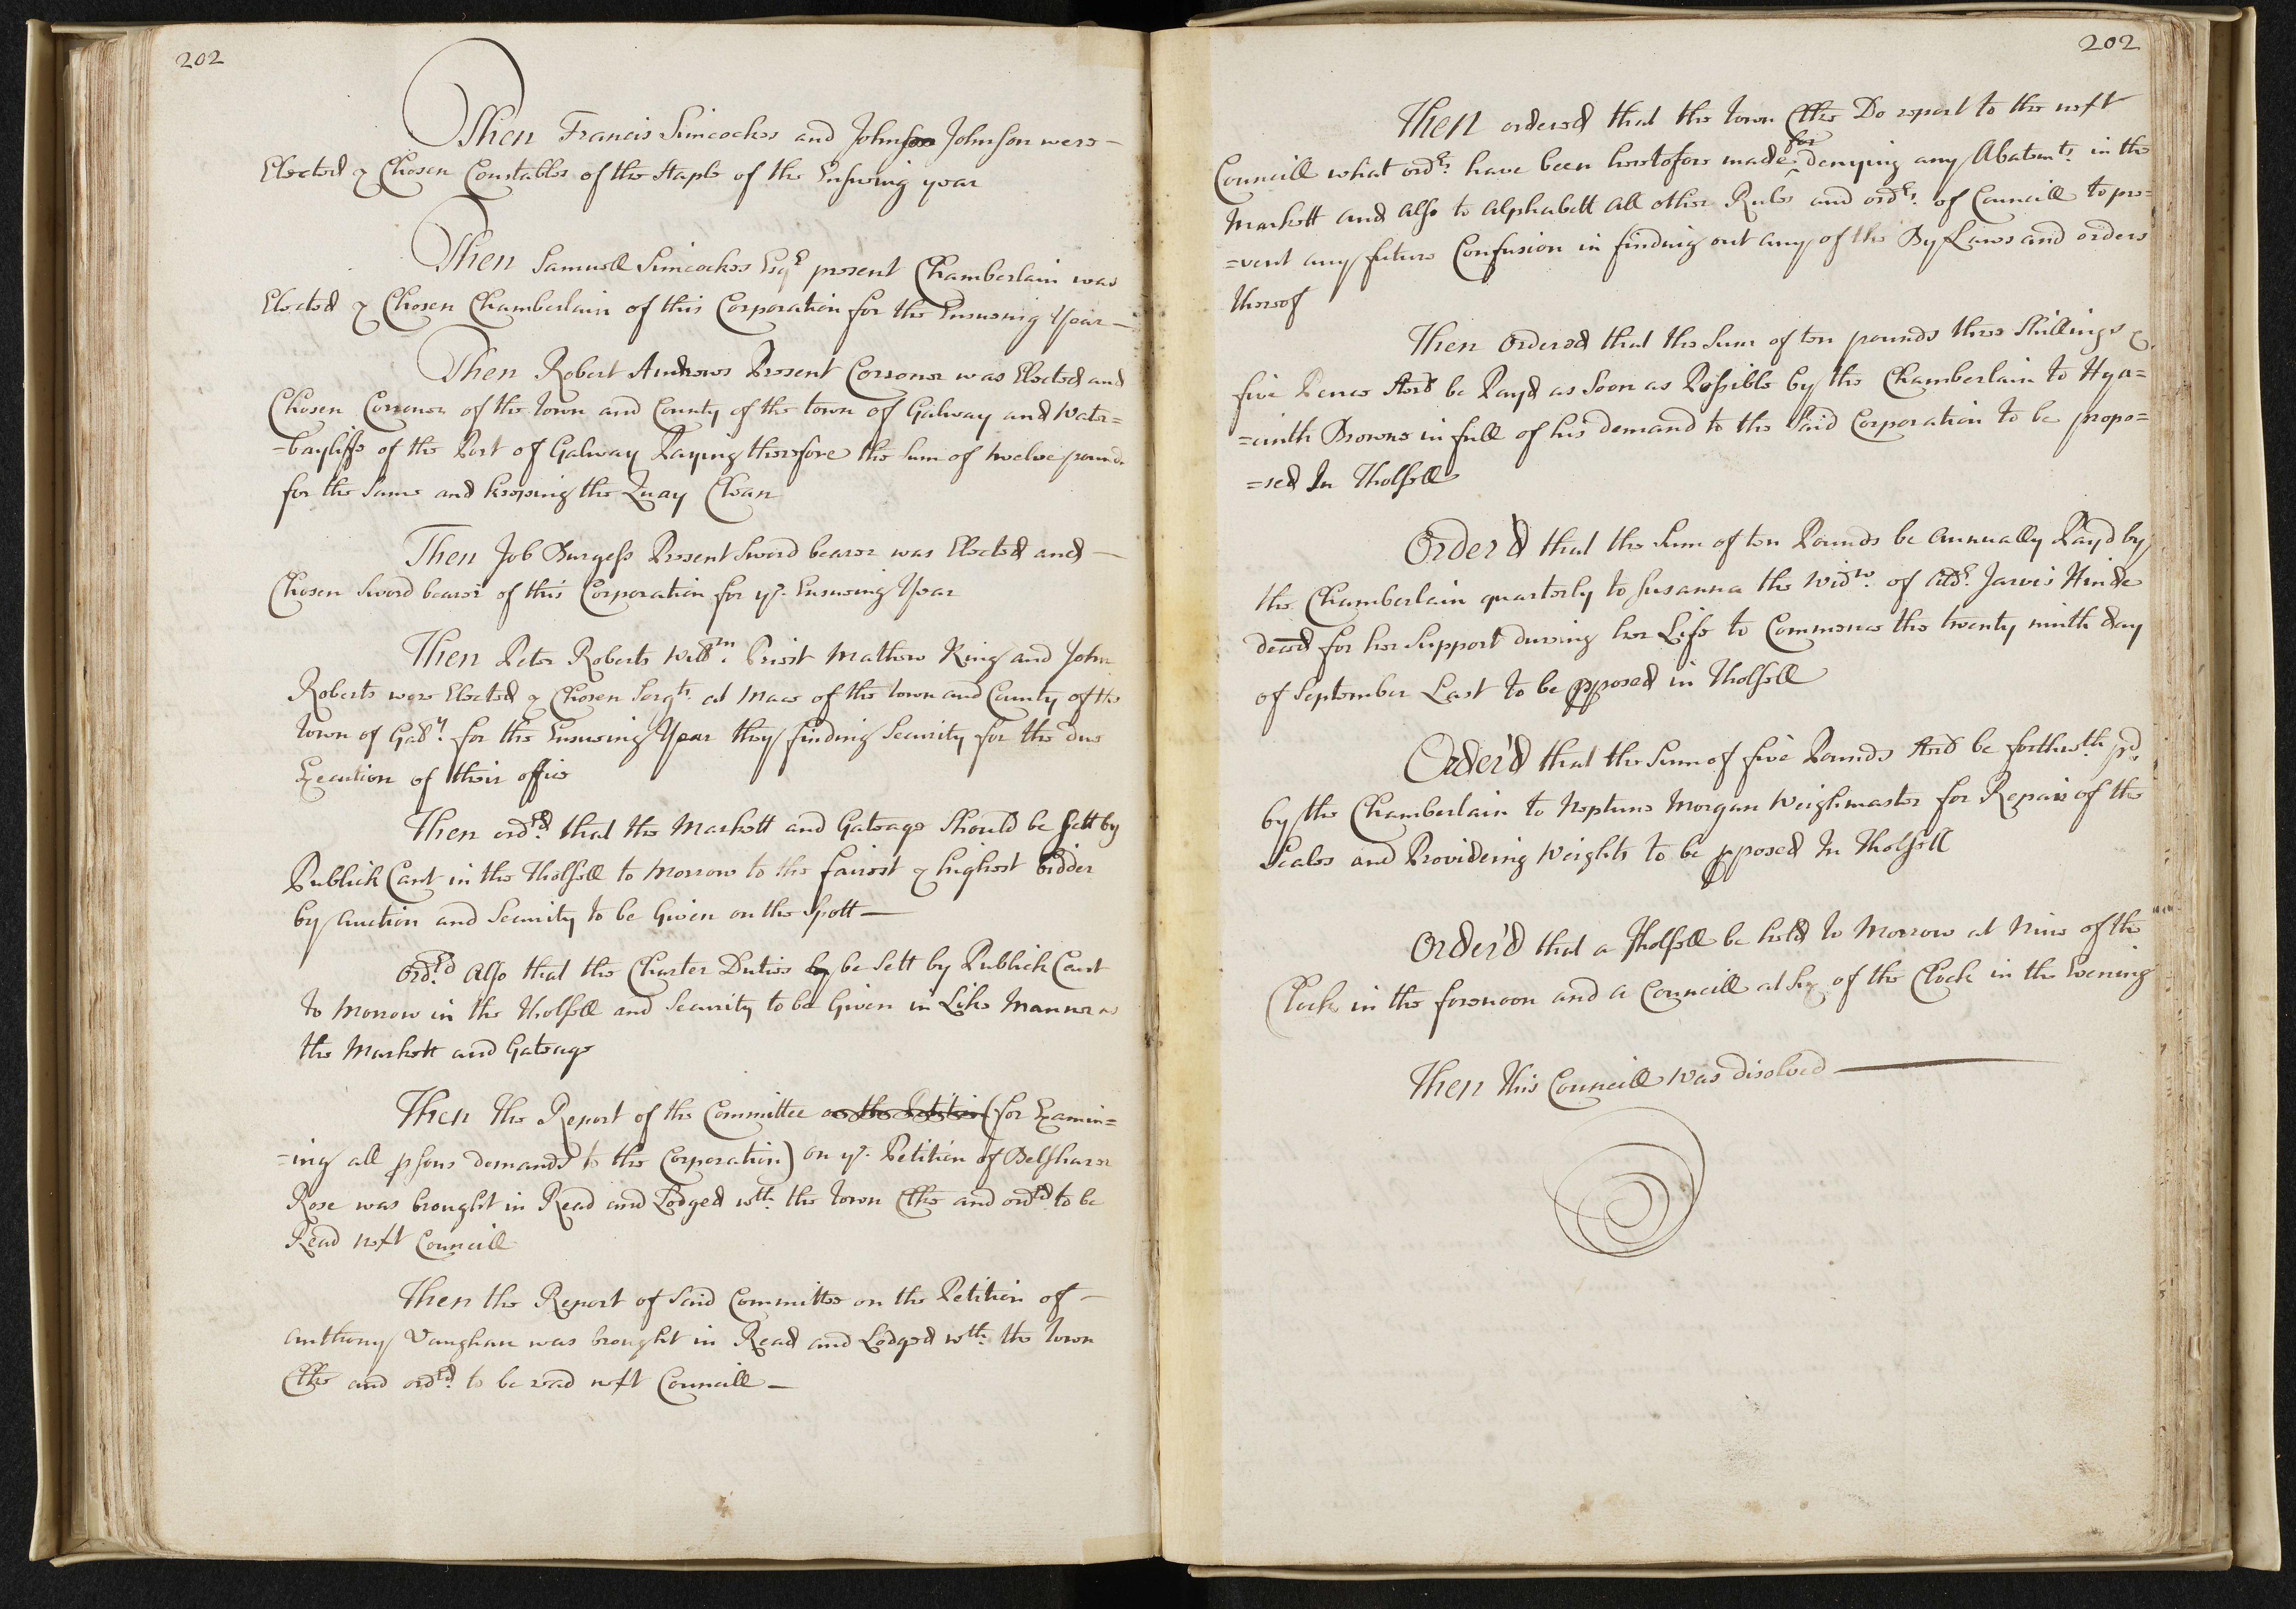 202
Then Francis Simcockes and Johnson Johnson were
Elected & Chosen Constables of the Staple of the Ensueing year
Then Samuell Simcockes Esqr. present Chamberlain was
Elected & Chosen Chamberlain of this Corporation for the Ensueing Year
Then Robert Andrews Present Corroner was Elected and
Chosen Corroner of the town and County of the town of Galway and Water=
=bayliffe of the Port of Galway Paying therefore the Sum of twelve pounds
for the Same and keeping the Quay Clean
Then Job Burgess Present Sword bearer was Elected and
Chosen Sword bearer of this Corporation for ye. Ensueing Year
Then Peter Roberts Willm. Priest Mathew King and John
Roberts were Elected & Chosen Sergts. at Mace of the town and County of the
town of Gally. for the Ensueing Year they finding Security for the due
Execution of their office
Then ordrd. that the Markett and Gateage Should be Sett by
Publick Cant in the Tholsell to Morrow to the fairest & highest bidder
by Auction and Security to be Given on the Spott
Ordrd. Also that the Charter Duties by be Sett by Publick Cant
to Morrow in the Tholsell and Security to be Given in Like Manner as
the Markett and Gateage
Then the Report of the Committee on the Petition (for Examin=
=ing all psons demands to the Corporation) on ye. Petition of Belshazer
Rose was brought in Read and Lodged wth. the town Clke and ordrd. to be
Read next Councill
Then the Report of Said Committee on the Petition of
Anthony Vaughan was brought in Read and Lodged wth. the Town
Clke and ordrd. to be read next Councill
202
Then ordered that the town Clke Do report to the next
for
Councill what ordrs. have been heretofore made ^ denying any Abatemts. in the
Markett and Also to Alphabett All other Rules and ordrs. of Councill to pre=
=vent any future Confusion in finding out any of the By Laws and orders
thereof
Then Ordered that the Sum of ten pounds three Shillings &
five Pence Sterl be Payd as Soon as Possible by the Chamberlain to Hya=
=cinth Browne in full of his demand to the Said Corporation to be propo=
=sed In Tholsell
Order'd that the Sum of ten Pounds be Annually Payd by
the Chamberlain quarterly to Susanna the Widw. of Aldr. Jarvis Hinde
deced for her Support dureing her Life to Commence the twenty ninth day
of September Last to be pposed in Tholsell
Order'd that the Sum of five Pounds Sterl be forthwth. pd.
by the Chamberlain to Neptune Morgan Weighmaster for Repair of the
Scales and Provideing Weights to be pposed In Tholsell
Order'd that a Tholsell be held to Morrow at Nine of the
Clock in the forenoon and a Councill at Six of the Clock in the Evening
Then this Councill was disolved